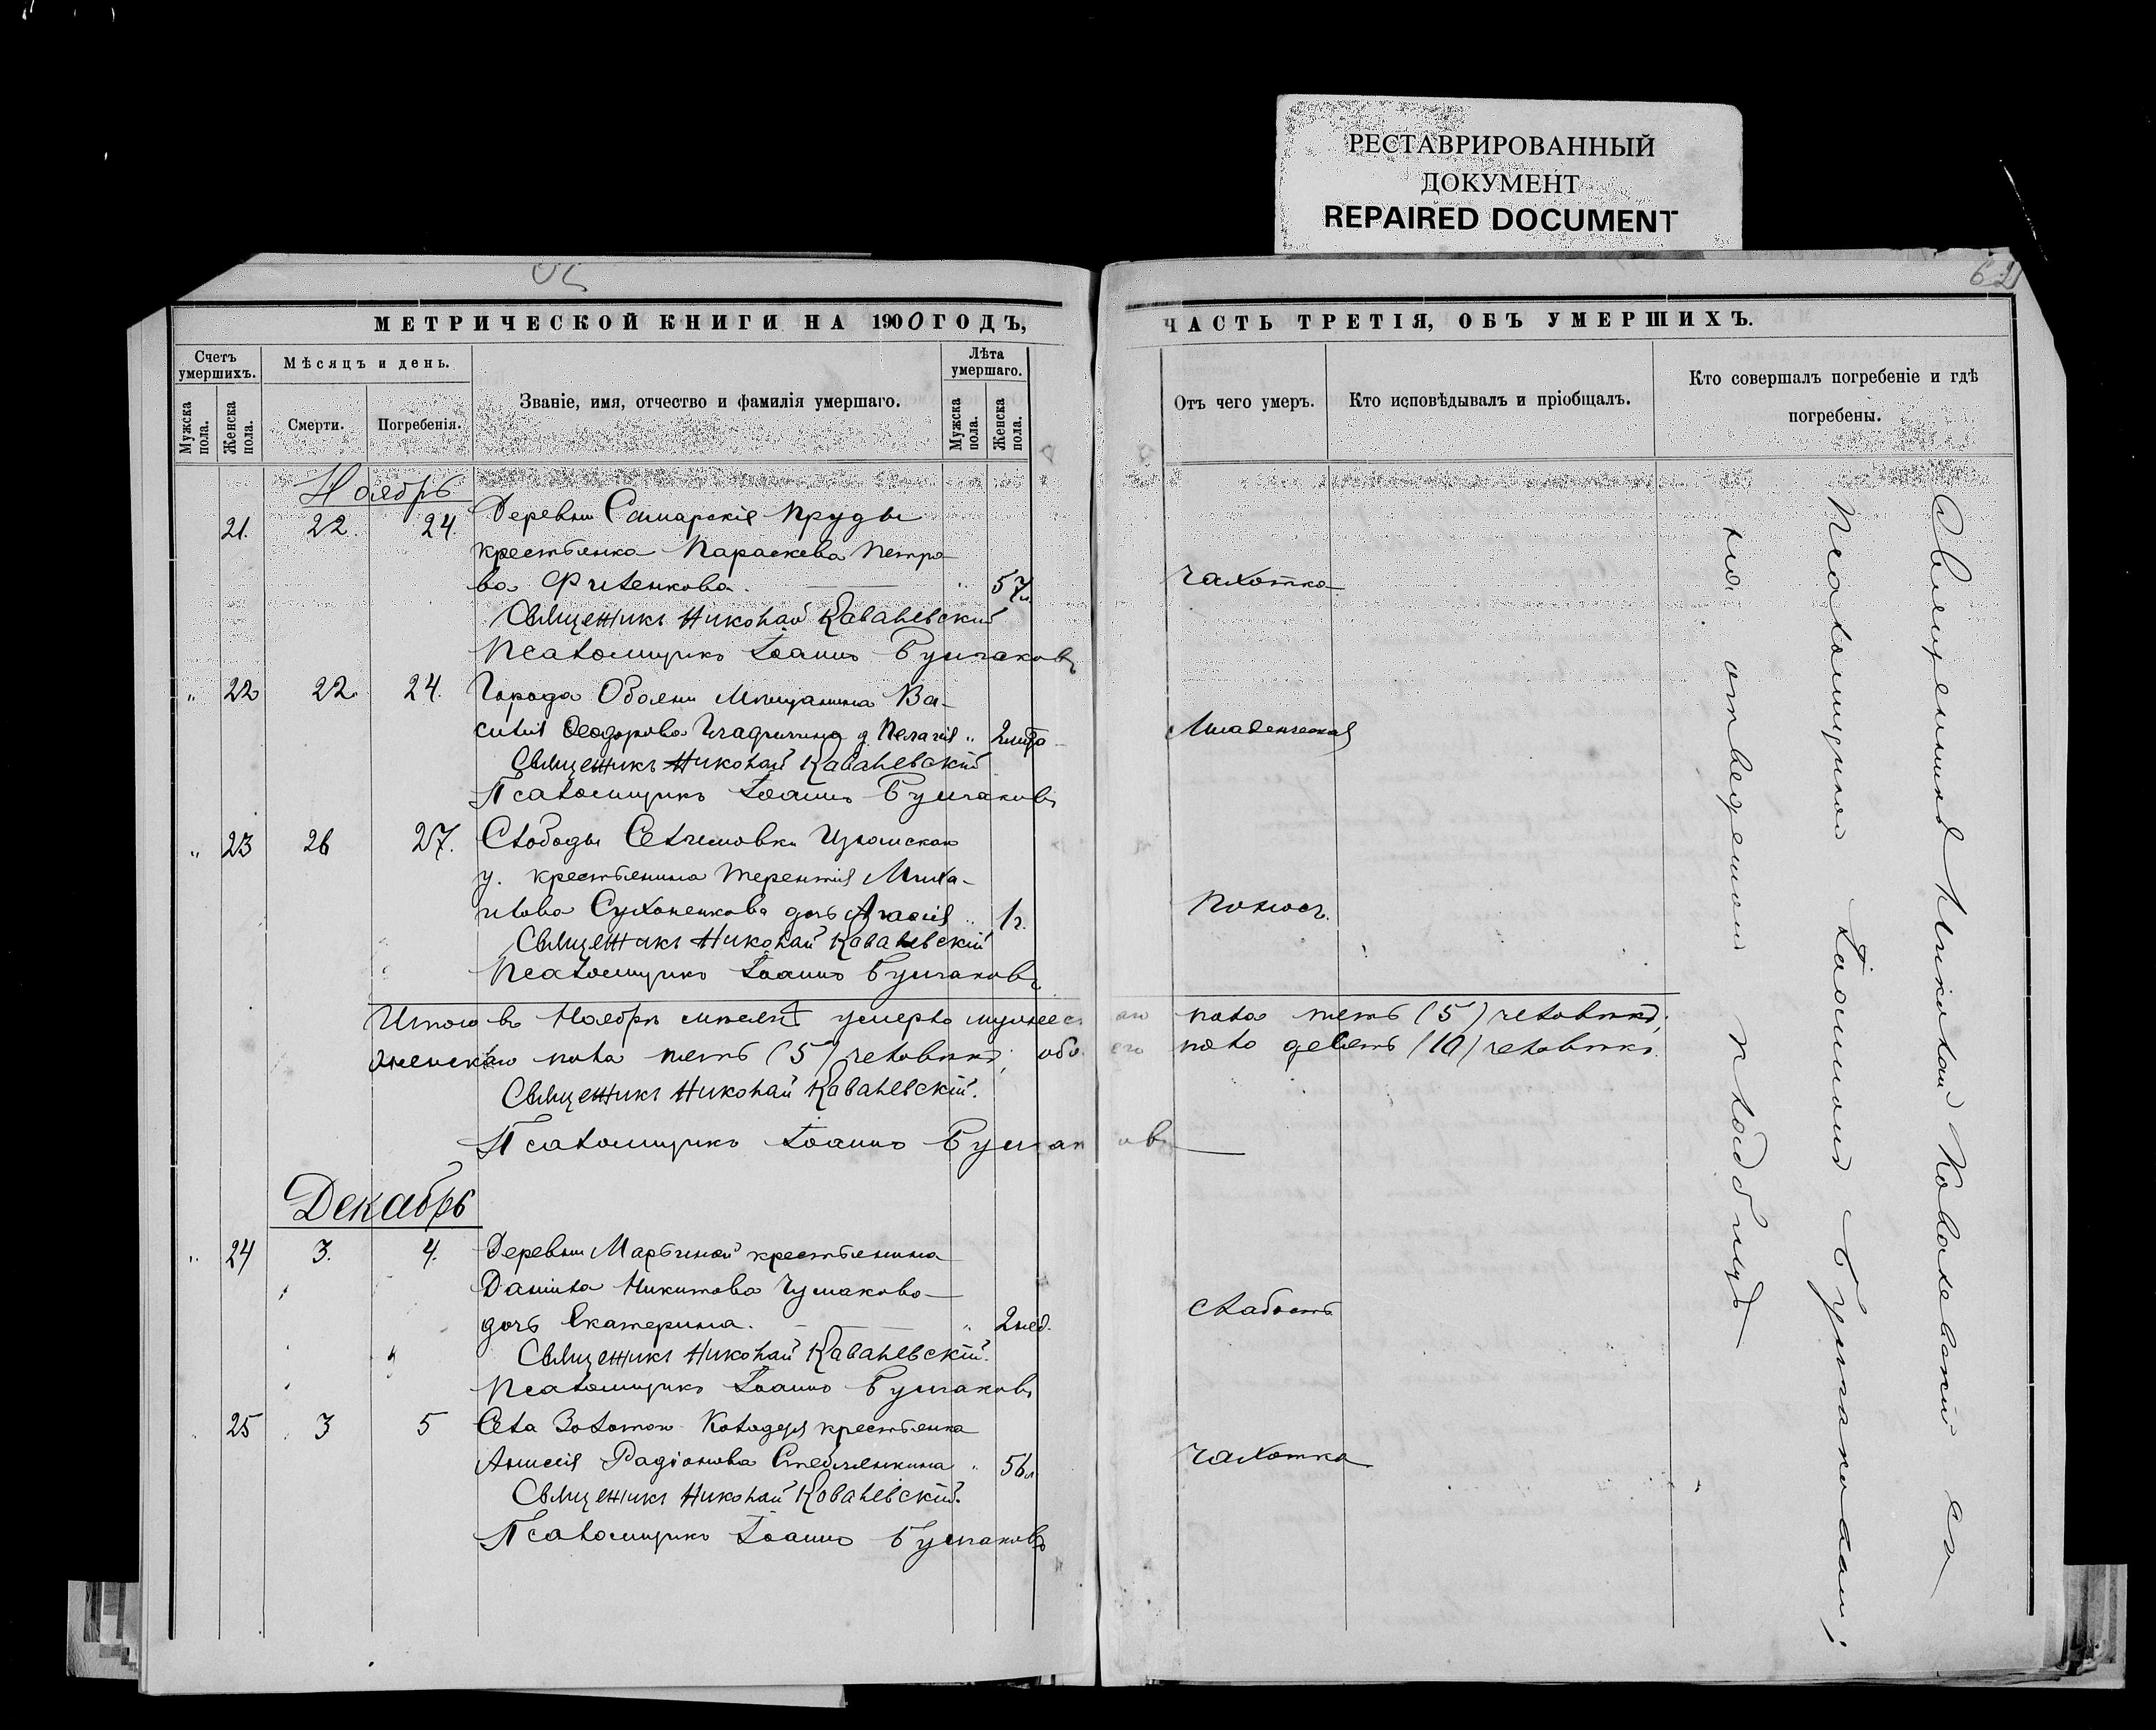 РЕСТАВРИРОВАННЫЙ
ДОКУМЕНТ
REPAIRED DOCUMENT
62
МЕТРИЧЕСКОЙ КНИГИ НА 1900 ГОДЪ,
ЧАСТЬ ТРЕТІЯ, ОБЪ УМЕРШИХЪ.
Счетъ умершихъ.
Мужска пола.
Женска пола.
Мѣсяцъ и день.
Смерти.
Погребенія.
Званіе, имя, отчество и фамилія умершаго.
Лѣта умершаго.
Мужска пола.
Женска пола.
Отъ чего умеръ.
Кто исповѣдывалъ и пріобщалъ.
Кто совершалъ погребеніе и гдѣ
погребены.
Ноябрь
21. 22. 24. Деревни Самарскія Пруды
крестьянка Параскева Петро
ва 57 л. чахотка
Священникъ Николай Ковалевскій
Псаломщикъ Іоаннъ Булгаковъ
" 22 22. 24. Города Обояни мѣщанина Ва-
силія Ѳеодорова д. Пелагія " Младенческая
Священникъ Николай Ковалевскій
Псаломщикъ Іоаннъ Булгаковъ
" 23 26 27. Слободы Изюмскаго
у. крестьянина Терентія Миха-
илова дочь " 1 г. Поносъ.
Священникъ Николай Ковалевскій
Псаломщикъ Іоаннъ Булгаковъ
Итого въ Ноябрѣ мѣсяцѣ умерло мужескаго пола пять (5) человѣкъ;
женскаго пола пять (5) человѣкъ; обоего пола десять (10) человѣкъ.
Священникъ Николай Ковалевскій.
Псаломщикъ Іоаннъ Булгаковъ
Декабрь
" 24 3. 4. Деревни Марьиной крестьянина
Даніила Никитова Чумакова
дочь Екатерина. " 2 нед. слабость
Священникъ Николай Ковалевскій.
Псаломщикъ Іоаннъ Булгаковъ
25 3 5 Села крестьянка
Анисія Радіонова " 56 л чахотка
Священникъ Николай Ковалевскій.
Псаломщикъ Іоаннъ Булгаковъ
Священникъ Николай Ковалевскій съ
Псаломщикомъ Іоанномъ Булгаковымъ;
на отведенномъ кладбищѣ